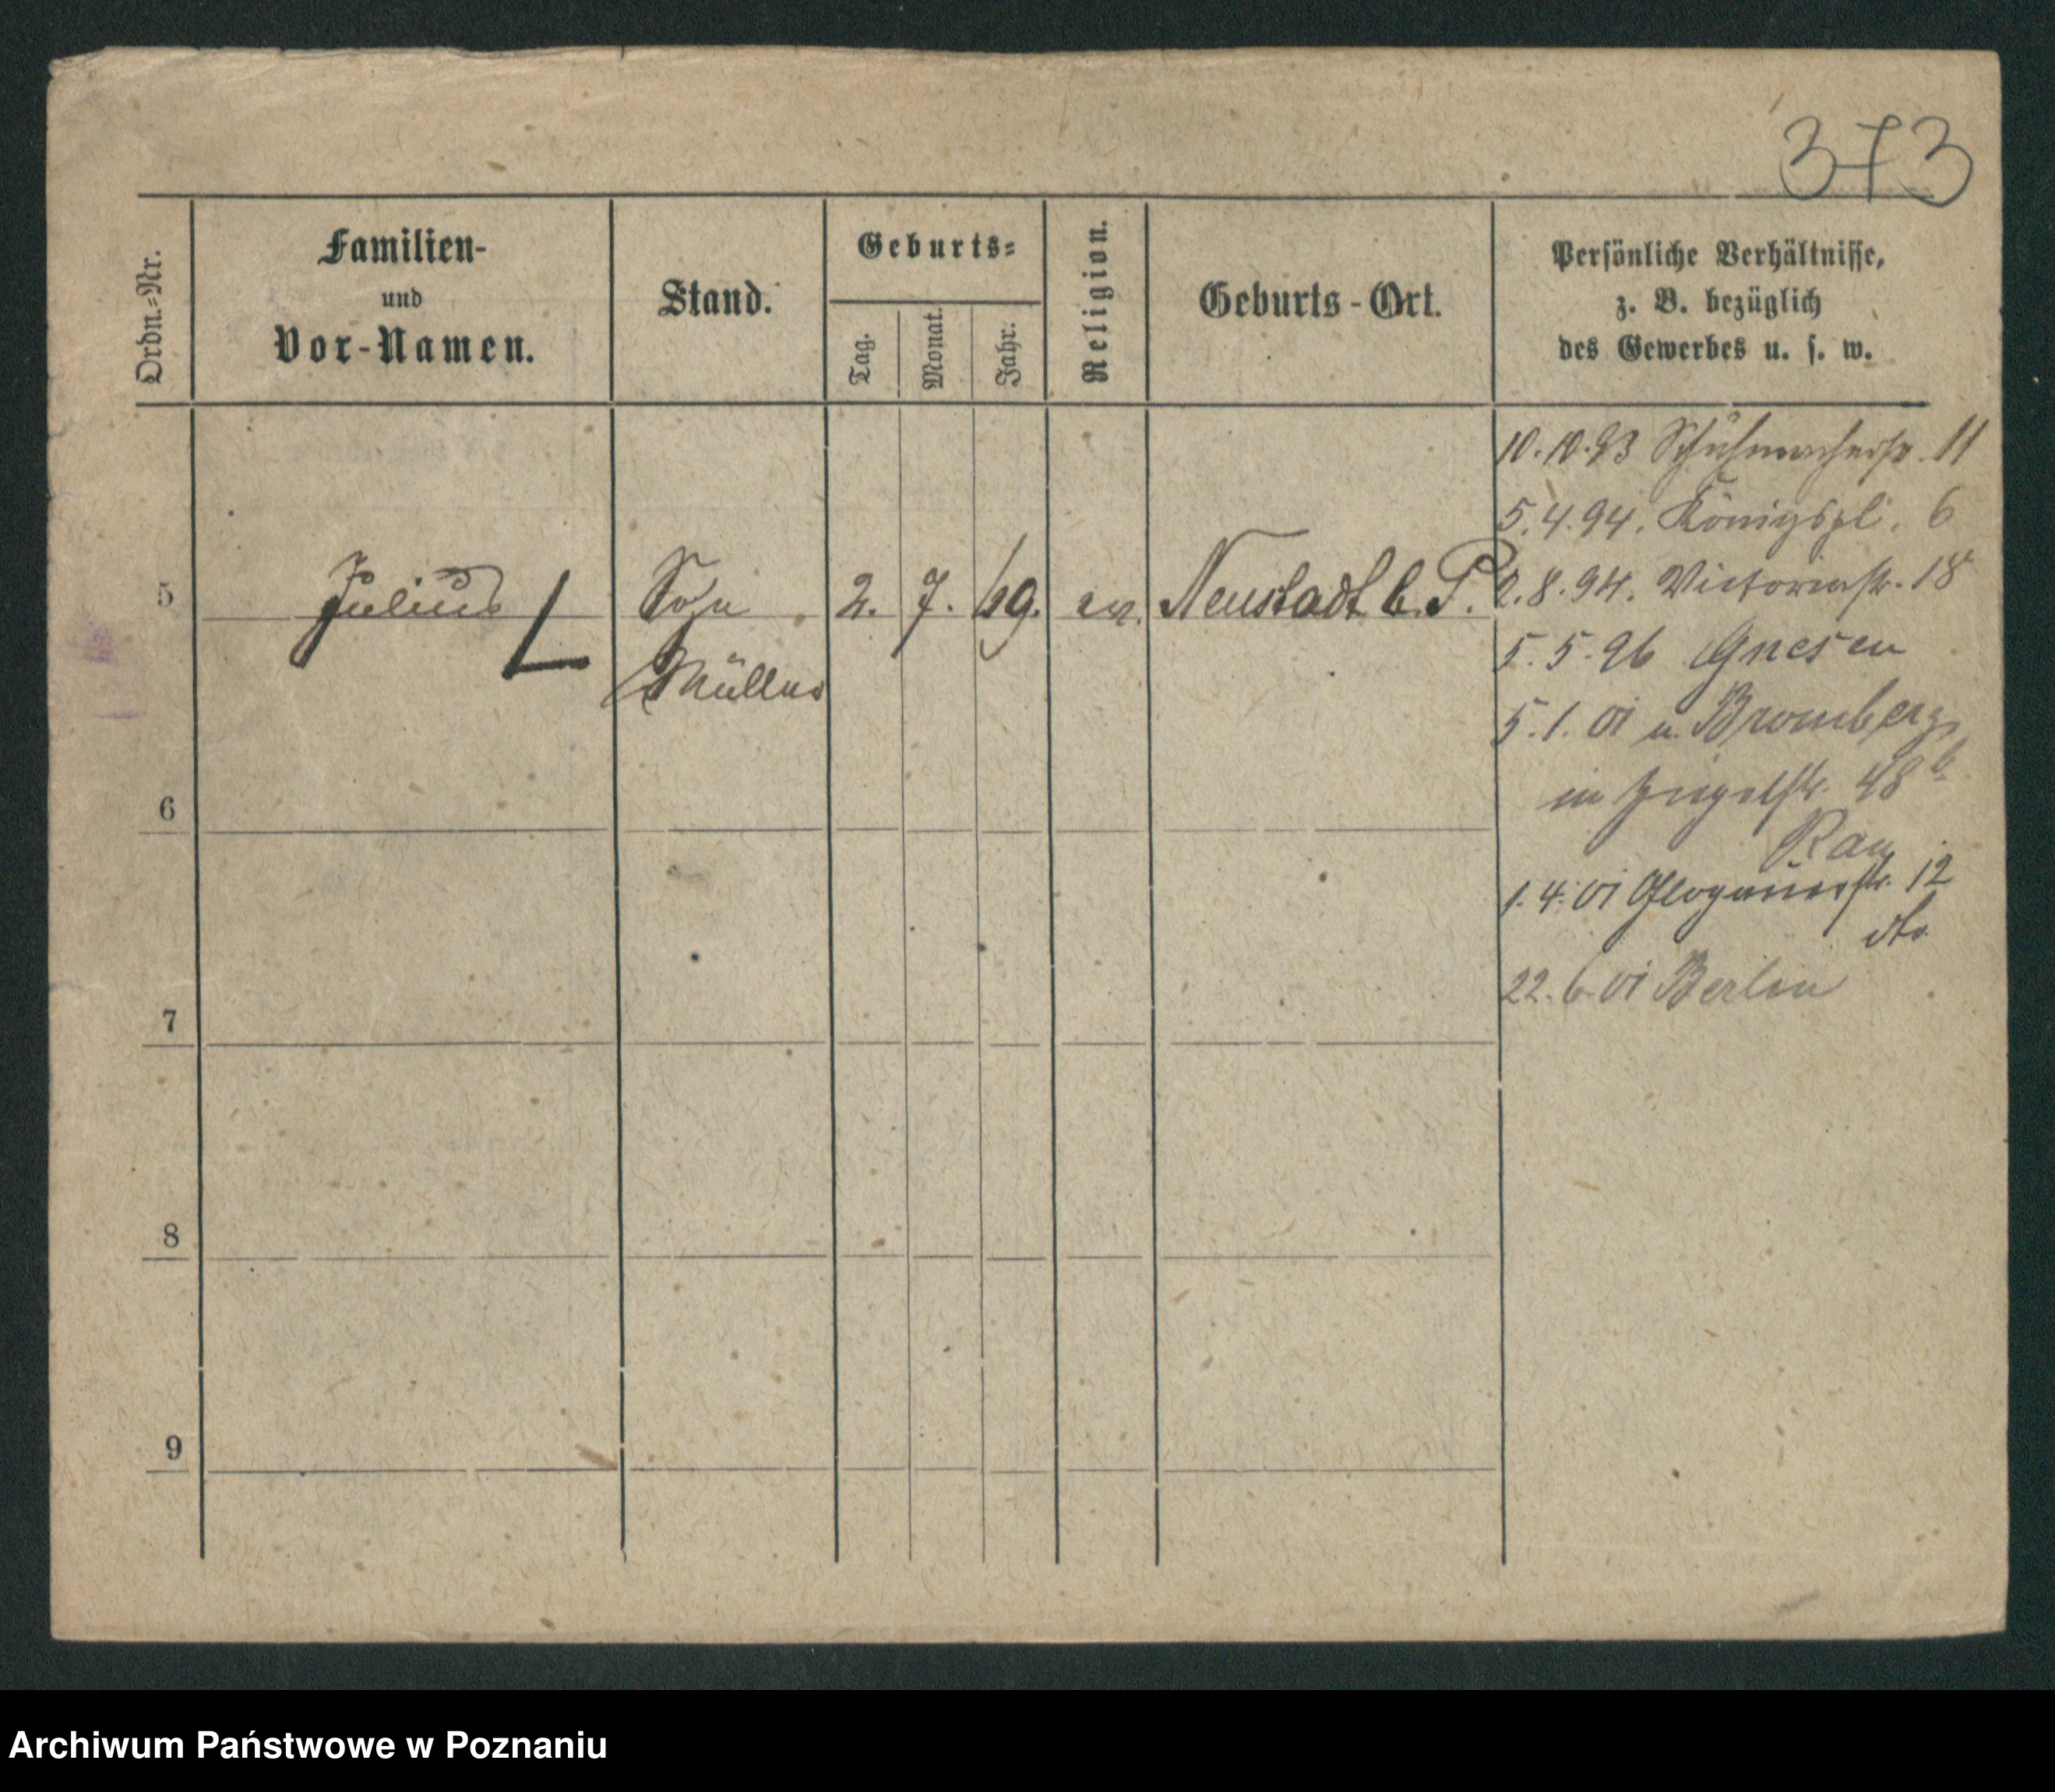 373
Ordn.=Nr.
Familien-
und
Vor-Namen.
Stand.
Geburts=
Tag.
Monat.
Jahr.
Religion.
Geburts-Ort.
Persönliche Verhältnisse,
z. B. bezüglich
des Gewerbes u. s. w.
10.10.93 Schuhmacherstr. 11
5.4.94. Königspl. 6
5 Julius Sohn 2. 7. 69. ev. Neustadt b. P.
2.8.94. Victoriastr. 18
Müller
5.5.96 Gnesen
5.1.01 u. Bromberg
in Ziegelstr. 48 b
6
Rau
1.4.01 Glogauerstr. 12
dto
22.6.01 Berlin
7
8
9
Archiwum Państwowe w Poznaniu